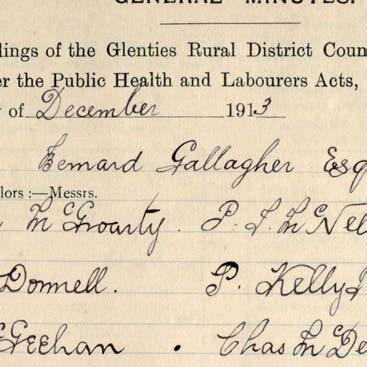 GENERAL MINUTES.
dings of the Glenties Rural District Coun
er the Public Health and Labourers Acts,
y of December 1913
Bernard Gallagher Esq
lors :—Messrs.
McGroarty. P. J. McNel
Donnell. P. Kelly
cGeehan . Chas McDe